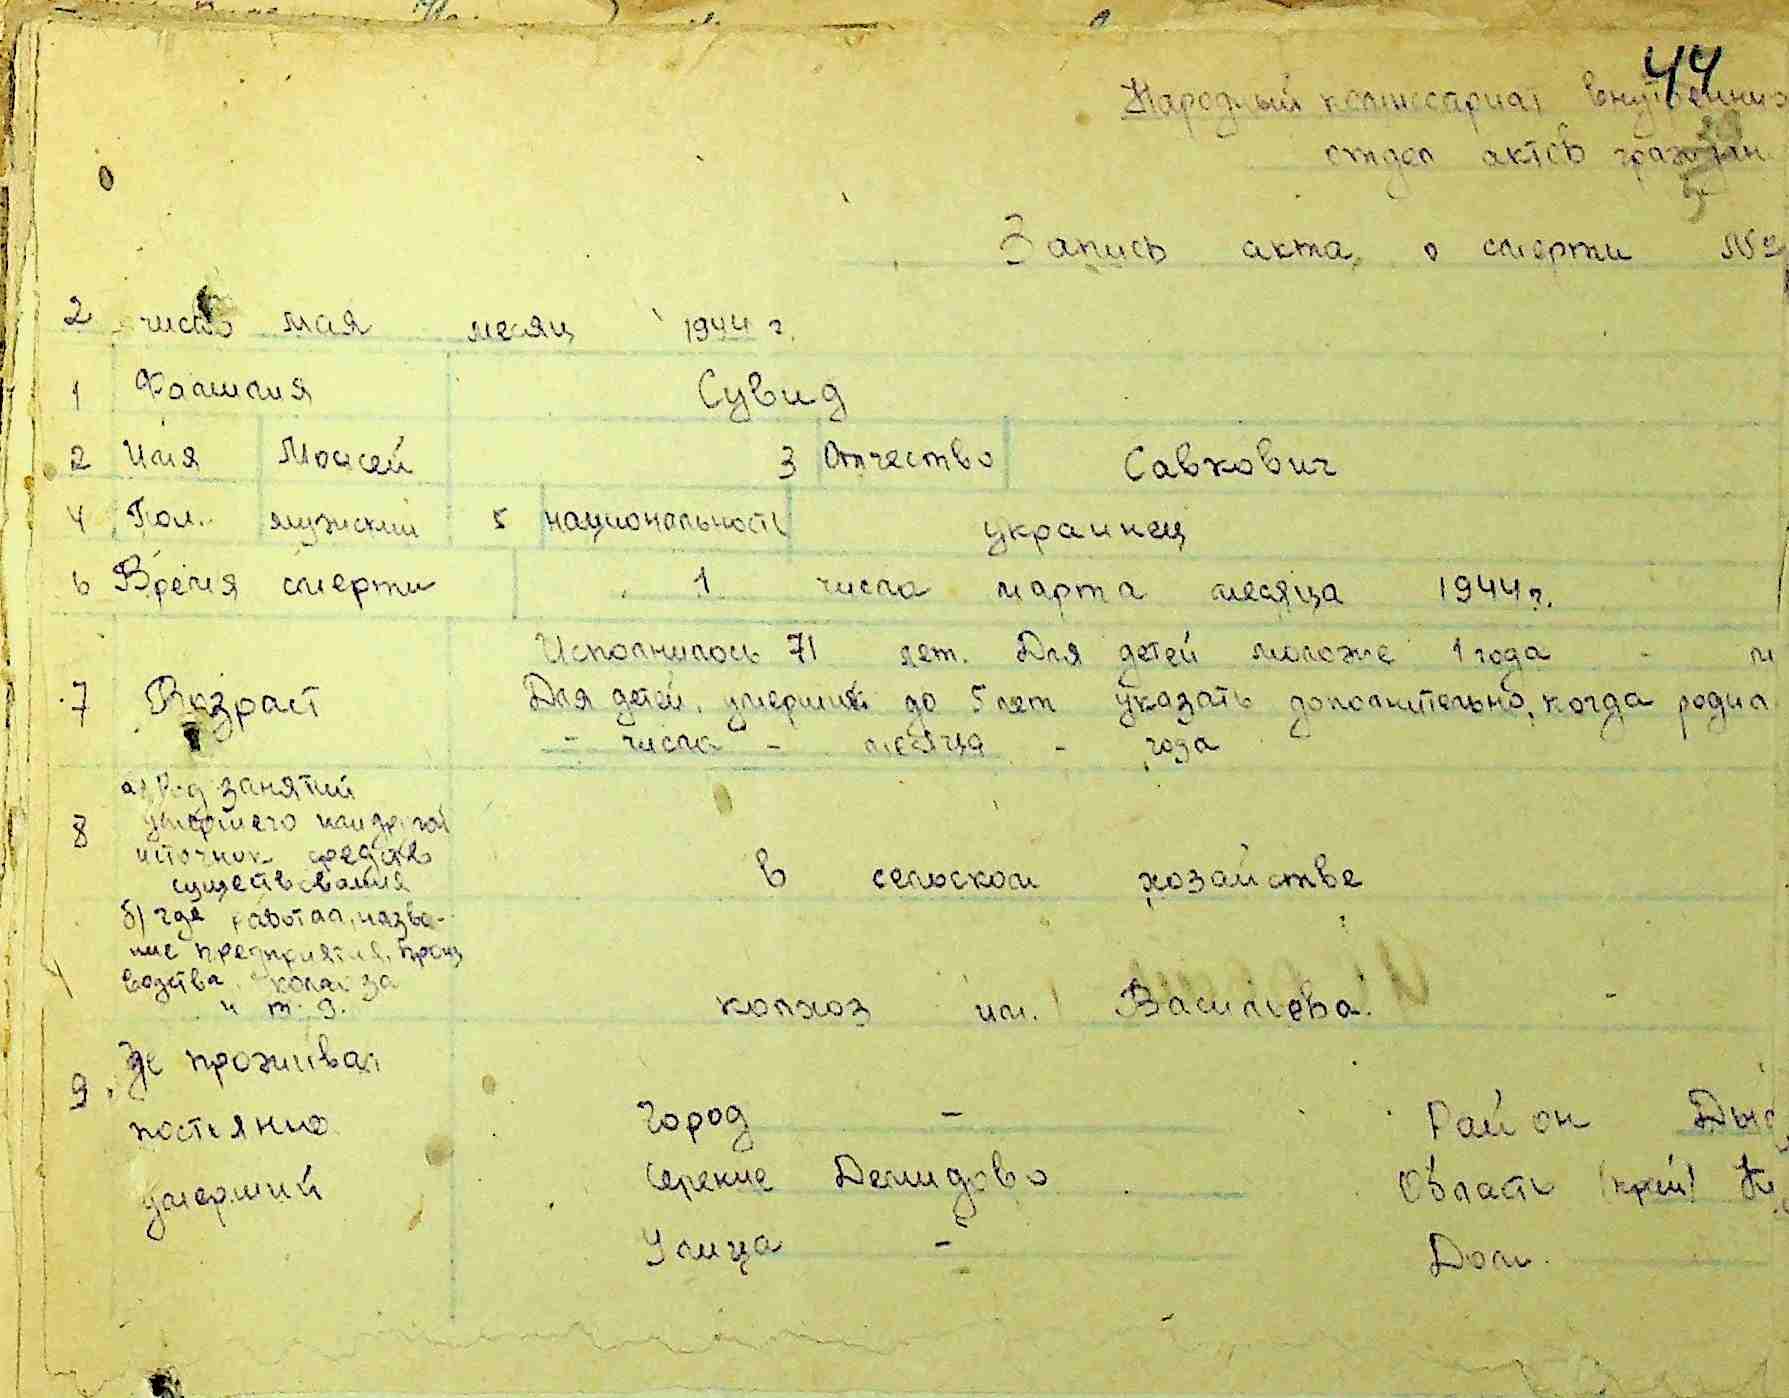 44
Народный комиссариат внутренних
отдел актов граждан
Запись акта о смерти №
2 число мая месяц 1944 г.
1 Фамилия Сувид
2 Имя Моисей 3 Отчество Савкович
4 Пол. мужский 5 национальность украинец
6 Время смерти 1 числа марта месяца 1944 г.
Исполнилось 71 лет. Для детей моложе 1 года - м
7 Возраст Для детей, умерших до 5 лет указать дополнительно, когда родил
- числа - месяца - года
а) Род занятий
8 умершего или другой
источник средств
существования в сельском хозайстве
б) где работал, назва-
ние предприятия, произ
водства, колхоза
и т. д. колхоз им. Васильева.
9. Где проживал
постоянно Город - Район Дыд
умерший Селение Демидово Область (край) Ки
Улица - Дом.